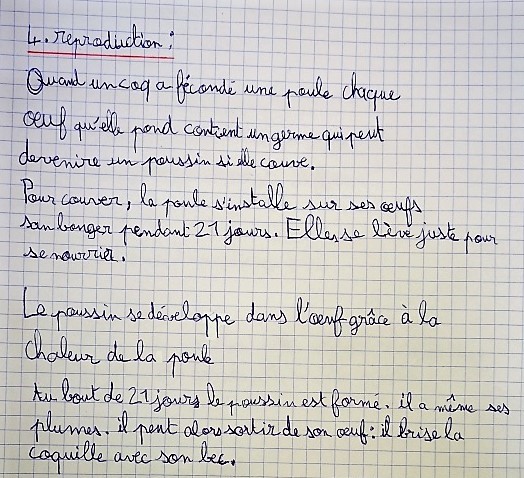 4. reproduction :
Quand un coq a fécondé une poule chaque
œuf qu'elle pond contient un germe qui peut
devenire un poussin si elle couve.
Pour couver, la poule s'installe sur ses œufs
san bouger pendant 21 jours. Elle se lève juste pour
se nourrir.
Le poussin se développe dans l'œuf grâce à la
chaleur de la poule
Au bout de 21 jours le poussin est formé. il a même ses
plumes. il peut alors sortir de son œuf : il brise la
coquille avec son bec.